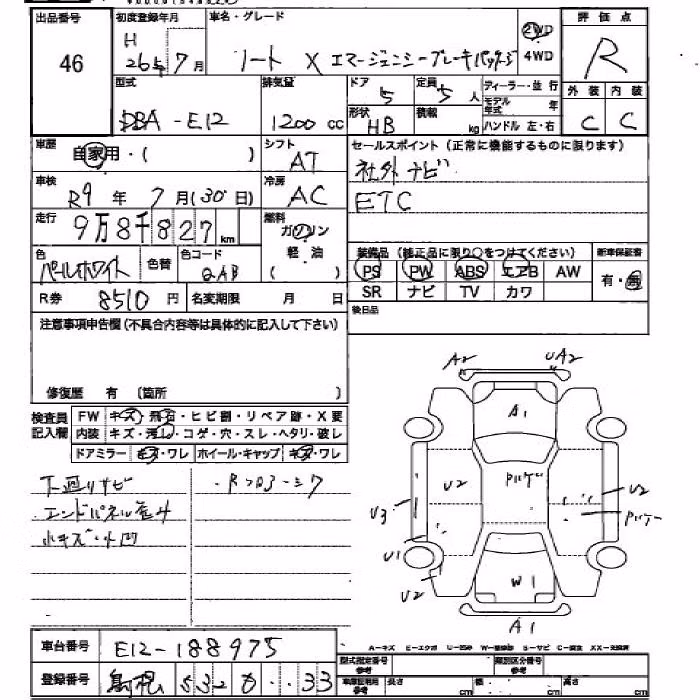 出品番号 初度登録年月 車名・グレード 評価点
46 H 26年7月 ノート X エマージェンシーブレーキパッケージ 2WD 4WD R
型式 排気量 ドア 定員 ディーラー・並行 外装 内装
DBA-E12 1200cc 5 5人 モデル年式 年 C C
形状 積載 ハンドル 左・右
HB kg
車歴 自家用・( ) シフト AT セールスポイント(正常に機能するものに限ります)
社外ナビ
車検 R9年7月(30日) 冷房 AC ETC
走行 9万8千827km 燃料 ガソリン
軽・油
( )
色 パールホワイト 色替 色コード QAB
装備品(純正品に限り○をつけてください) 新車保証書
PS PW ABS エアB AW 有・無
SR ナビ TV カワ
R券 8510円 名変期限 月 日 後日品
注意事項申告欄(不具合内容等は具体的に記入して下さい)
修復歴 有 〔箇所 〕
検査員記入欄 FW キズ・飛石・ヒビ割・リペア跡・X要
内装 キズ・汚れ・コゲ・穴・スレ・ヘタリ・破レ
ドアミラー キズ・ワレ ホイール・キャップ キズ・ワレ
下廻りサビ
エンドパネル歪み
小キズ・小凹
A2 UA2
A1
U2 U2
U3
U1
U2
W1
A1
車台番号 E12-188975
A-キズ E-エクボ U-凹み W-補修跡 S-サビ C-腐食 XX-交換済
登録番号 島根 532 る ・・33
型式指定番号 参考 類別区分番号 参考
車庫証明用 参考 長さ cm 幅 cm 高さ cm